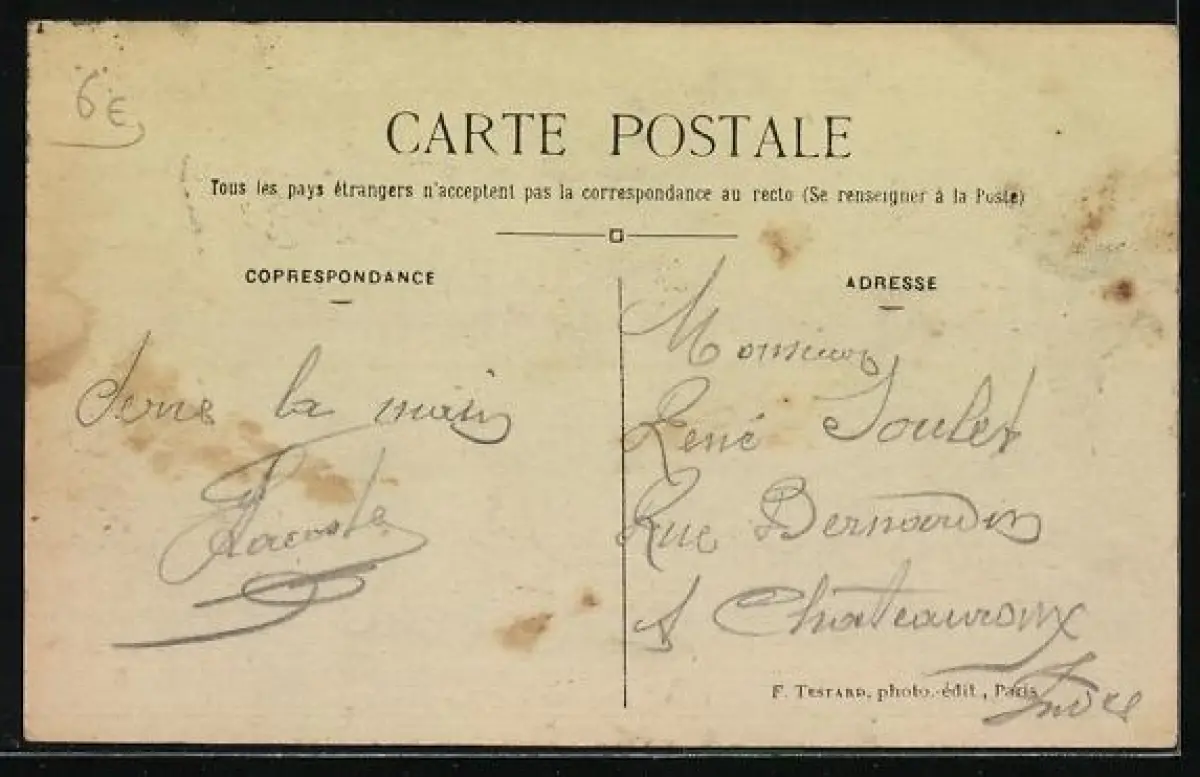 6€
CARTE POSTALE
Tous les pays étrangers n'acceptent pas la correspondance au recto (Se renseigner à la Poste)
CORRESPONDANCE
ADRESSE
Serre la main
Lacoste
Monsieur
René Soulet
Rue Bernardin
A Chateauroux
Indre
F. TESTARD, photo.-édit., Paris